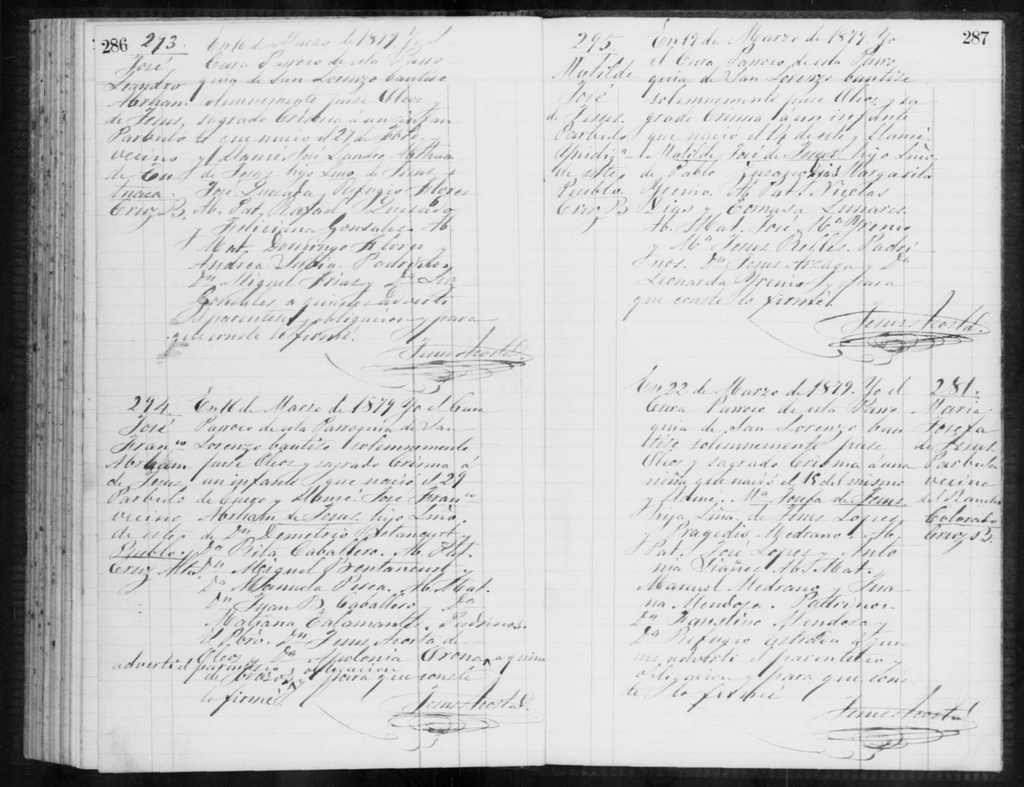 286
293.
José
Leandro
Abraham
de Jesus,
Parbulo
vecino
de
Cruz B.
En 16 de Marzo de 1879 Yo el
Cura Parroco de esta Parro
quia de San Lorenzo bautise
solemnemente puse Oleos y
sagrado Crisma á un infante
que nació el 27 de
y llamé José Leandro Abraham
de Jesus hijo Lmo. de Jesus
José Refugio Flores
Ab. Pat. Rafael
y Feliciana Gonsales Ab.
Mat. Domingo Flores y
Andrea Padrinos
Dn Miguel Frias y Da Luz
Gonsales a quienes adverti
el parentesco y obligacion y para
que conste lo firmé.
Jesus Acosta
294.
José
Franco
Abraham
de Jesus,
Parbulo
vecino
de este
Pueblo
Cruz Alta
En 16 de Marzo de 1879 Yo el Cura
Parroco de esta Parroquia de San
Lorenzo bautiso solemnemente
puse Oleos y sagrado Crisma á
un infante que nació el 29
de Enero y llamé José Franco
Abraham de Jesus. hijo Lmo.
de Dn Demetrio Betancurt y
Da Rita Caballero. Ab. Pat.
Dn Miguel y
Da Manuela Ab. Mat.
Dn Juan B. Caballero Da
Mariana Padrinos.
El Pbro. Dn Jesus Acosta de
Oleos Da Apolonia a quien
adverti el parentesco y obligacion
y para que conste
lo firmé.
Jesus Acosta
287
295.
Matilde
José
de Jesus.
Parbulo
de este
Pueblo
Cruz B
En 19 de Marzo de 1879. Yo
el Cura Parroco de esta Parro
quia de San Lorenzo bautise
solemnemente puse Oleos y sa
grado Crisma á un infante
que nació el 14 de este y llamé
Matilde José de Jesus hijo Lmo.
de Pablo y Margarita
Ab. Pat. Nicolas
Dias y Tomasa Linares.
Ab. Mat. José Ma
y Ma Jesus Padri
nos. Dn Jesus y Da
Leonarda y para
que conste lo firmé
Jesus Acosta
281.
Maria
Josefa
de Jesus.
Parbula
vecina
del Rancho
Colorado
Cruz B.
En 22 de Marzo de 1879. Yo el
Cura Parroco de esta Parro
quia de San Lorenzo bau
tise solemnemente puse
Oleos y sagrado Crisma á una
niña que nació el 15 del mismo
y llamé. Ma Josefa de Jesus
hija Lma. de Jesus Lopes
y Pragedis Medrano. Ab.
Pat. José Lopes y Anto
nia Ibañes Ab. Mat.
Manuel Medrano Jua
na Mendosa. Padrinos.
Dn Agustino Mendosa y
Da Refugio a quie
nes adverti el parentesco y
obligacion y para que cons
te lo firmé
Jesus Acosta